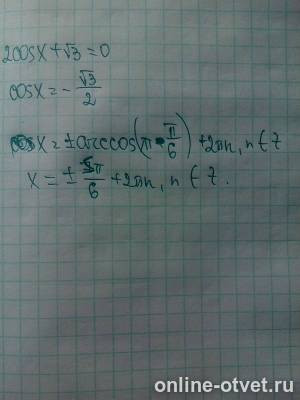 2cosx+√3=0
cosx=-√3/2
x=±arccos(π-π/6)+2πn, n∈Z
x=±5π/6+2πn, n∈Z.
online-otvet.ru